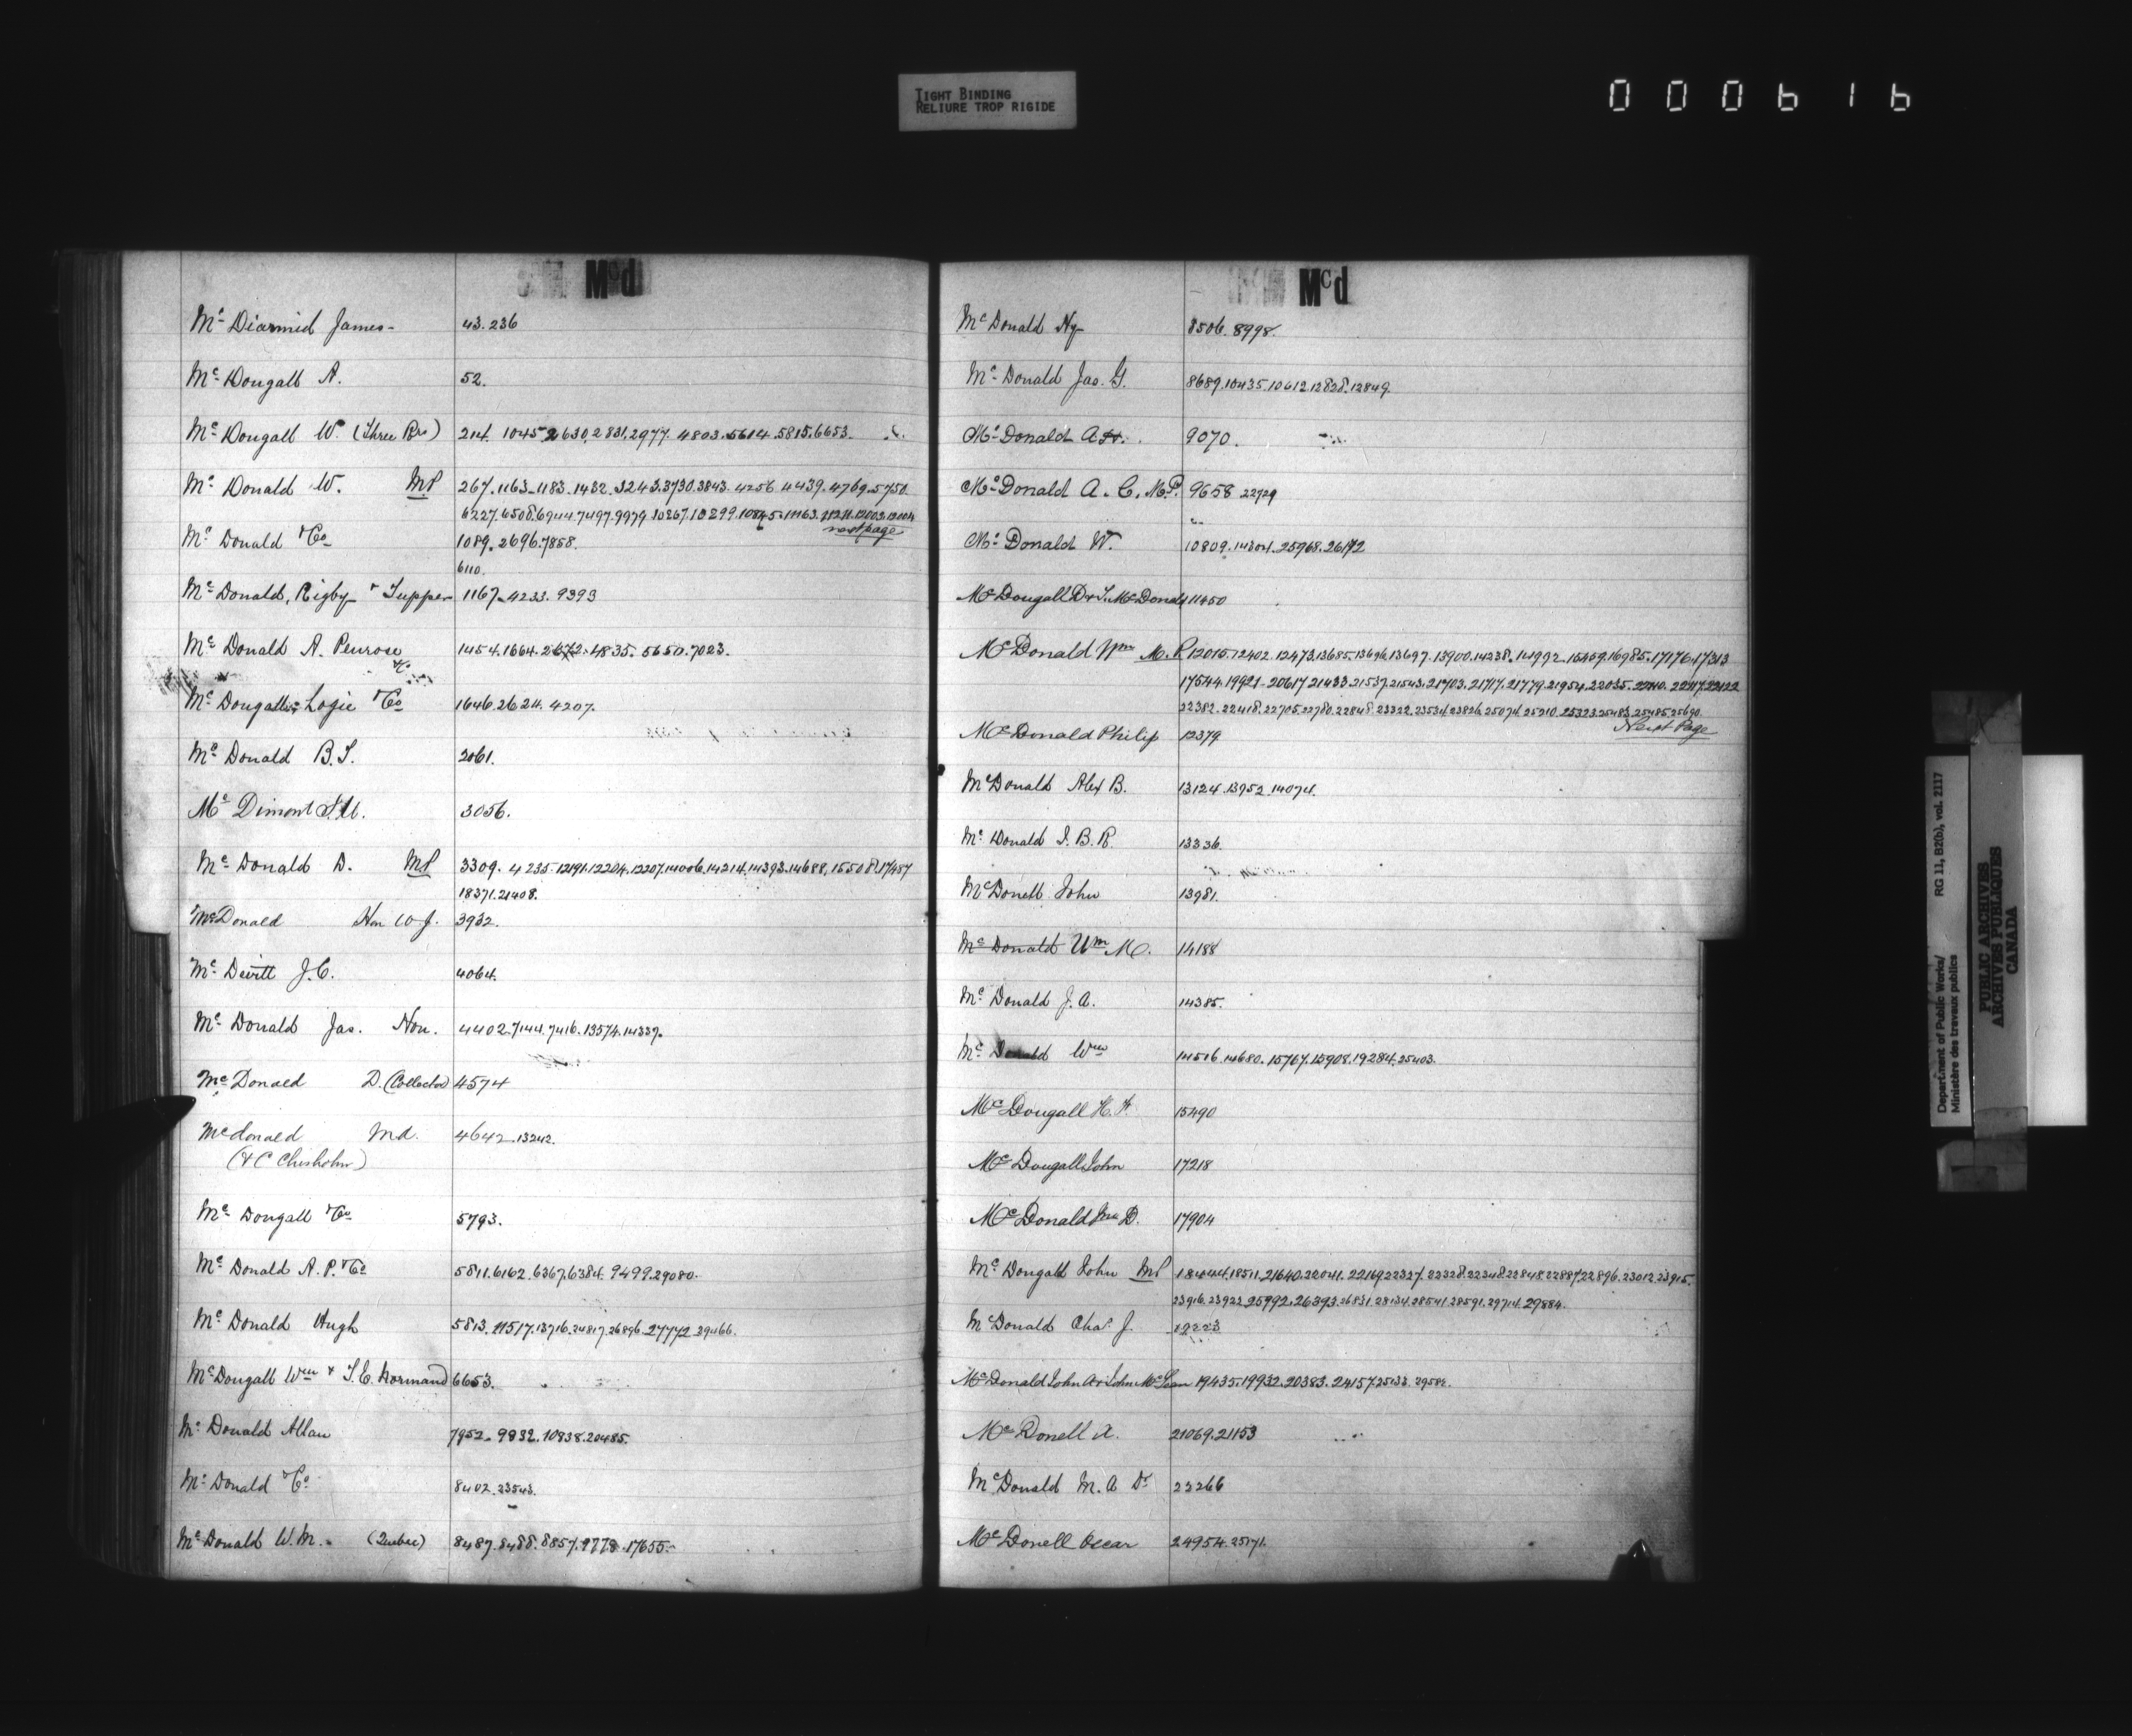 TIGHT BINDING
RELIURE TROP RIGIDE
000616
Mcd
Mc Diarmid James - 43. 236
Mc Dougall A. 52.
Mc Dougall W. (Three Rrs) 214. 1045. 2630. 2831. 2977. 4803. 5614. 5815. 6653.
Mc Donald W. MP 267. 1163. 1183. 1432. 3243. 3730. 3843. 4256. 4439. 4769. 5750.
6227. 6508. 6944. 7497. 9979. 10267. 10299. 10845. 11163.
next page
Mc Donald & Co 1089. 2696. 7858.
6110.
Mc Donald, Rigby & Tupper 1167. 4233. 9393
Mc Donald A. Penrose 1454. 1664. 2672. 4835. 5650. 7023.
Mc Dougall Logie & Co 1646. 2624. 4207.
Mc Donald B. S. 2061.
Mc Dimont 3056.
Mc Donald D. MP 3309. 4235. 12191. 12204. 12207. 14006. 14214. 14393. 14688. 15508. 17457
18371. 21408.
McDonald Hon W J. 3932.
Mc Devitt J. C. 4064.
Mc Donald Jas. Hon. 4402. 7144. 7416. 13574. 14339.
Mc Donald D. (Collector) 4574
McDonald Md. 4642. 13242.
(& C Chisholm)
Mc Dougall & Co 5793.
Mc Donald A. P. & Co 5811. 6162. 6367. 6384. 9499. 29080.
Mc Donald Hugh 5813. 11517. 13716. 24817. 26896. 27772. 29466.
McDougall Wm & T. C. Normand 6653.
Mc Donald Allan 7952. 9932. 10838. 20485.
Mc Donald & Co 8402. 23543.
Mc Donald W. M. (Quebec) 8487. 8488. 8857. 9778. 17655.
Mcd
Mc Donald Hy 8506. 8998.
Mc Donald Jas. G. 8689. 10435. 10612. 12828. 12849.
Mc Donald A 9070.
Mc Donald A. C. M.P. 9658 22729
Mc Donald W. 10809. 14304. 25968. 26172
McDougall D & S. McDonald 11450
McDonald Wm M. P. 12015. 12402. 12473. 13685. 13696. 13697. 13900. 14238. 14992. 15459. 16985. 17176. 17313
17544. 19921. 20617. 21433. 21537. 21543. 21703. 21717. 21779. 21954. 22035.
22382. 22418. 22705. 22780. 22848. 23322. 23534. 23826. 25074. 25210. 25323. 25483. 25485. 25690.
Next Page
McDonald Philip 12379
McDonald Alex B. 13124. 13952. 14074.
Mc Donald J. B. R. 13336.
McDonell John 13981.
Mc Donald Wm M. 14188
Mc Donald J. A. 14385.
Mc Donald Wm 14516. 14680. 15767. 15908. 19284. 25403.
McDougall H. F. 15490
McDougall John 17218
McDonald D. 17904
Mc Dougall John MP 18511. 21640. 22041. 22169. 22327. 22328. 22348. 22848. 22887. 22896. 23012. 23915.
23916. 23922. 25992. 26393. 26831. 28134. 28541. 28591. 29714. 29884.
McDonald Chas. J. 19223
McDonald John A & John McLean 19435. 19932. 20383. 24157. 25133. 29584.
McDonell A. 21069. 21153
McDonald M. A Dr 22266
McDonell Oscar 24954. 25171.
Department of Public Works/ RG 11, B2(b), vol. 2117
Ministère des travaux publics
PUBLIC ARCHIVES
ARCHIVES PUBLIQUES
CANADA